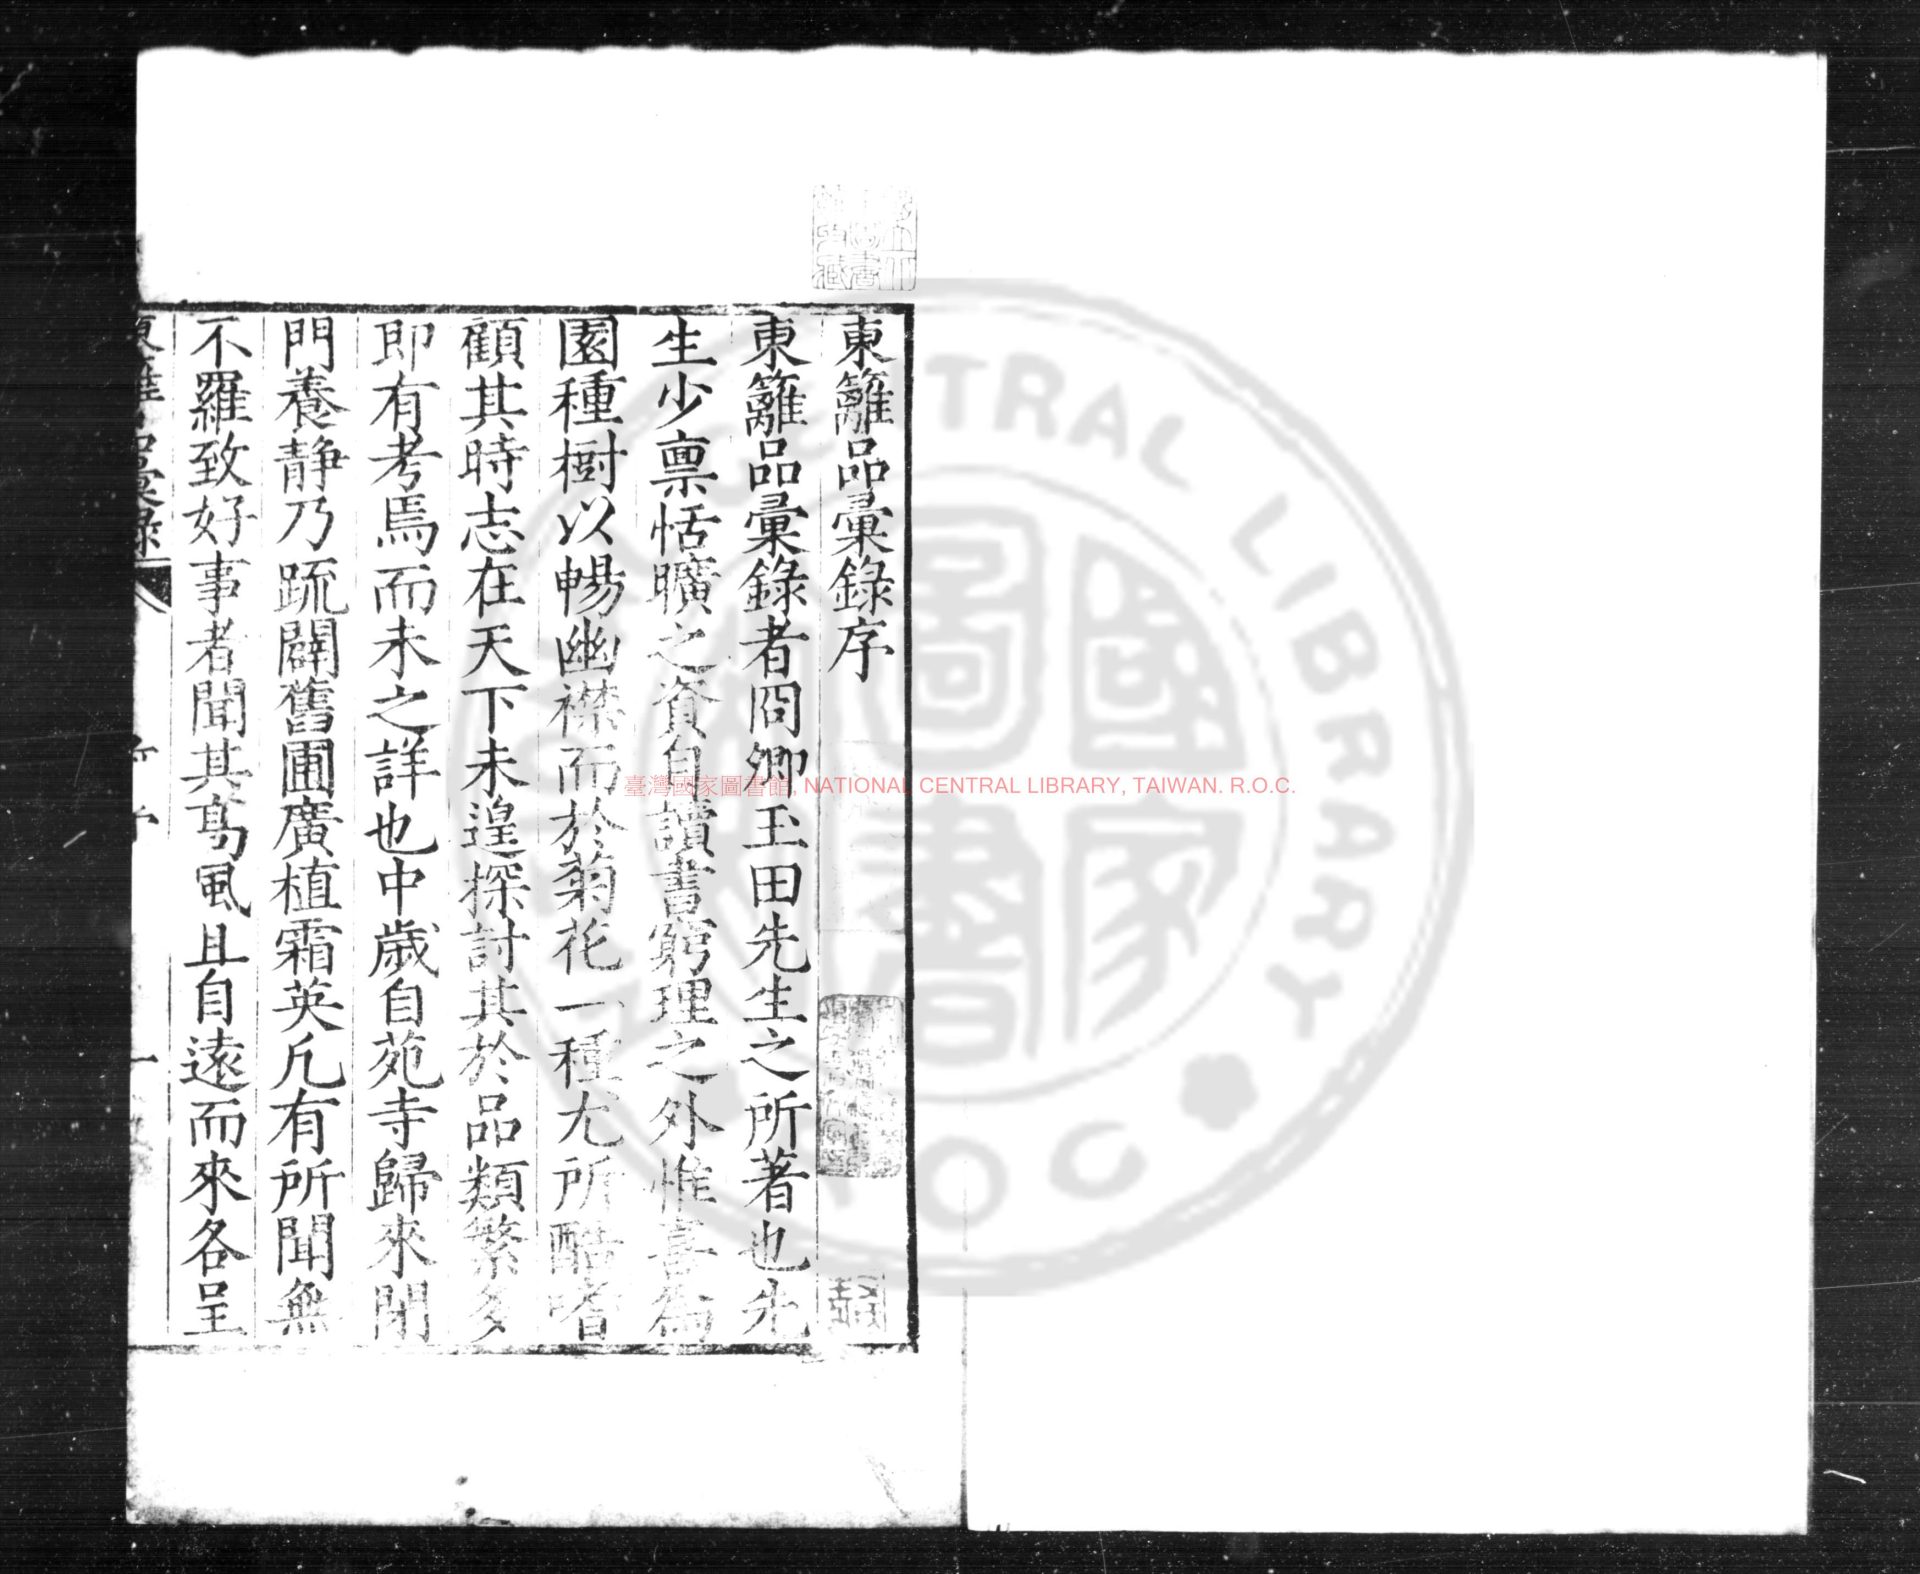 東籬品彙錄序
東籬品彙錄者冏卿玉田先生之所著也先
生少禀恬曠之資自讀書窮理之外惟喜為
園種樹以暢幽襟而於菊花一種尤所酷嗜
顧其時志在天下未遑探討其於品類繁多
即有考焉而未之詳也中歲自苑寺歸來閉
門養靜乃疏闢舊圃廣植霜英凡有所聞無
不羅致好事者聞其高風且自遠而來各呈
臺灣國家圖書館, NATIONAL CENTRAL LIBRARY, TAIWAN. R.O.C.
CENTRAL LIBRARY
國家圖書